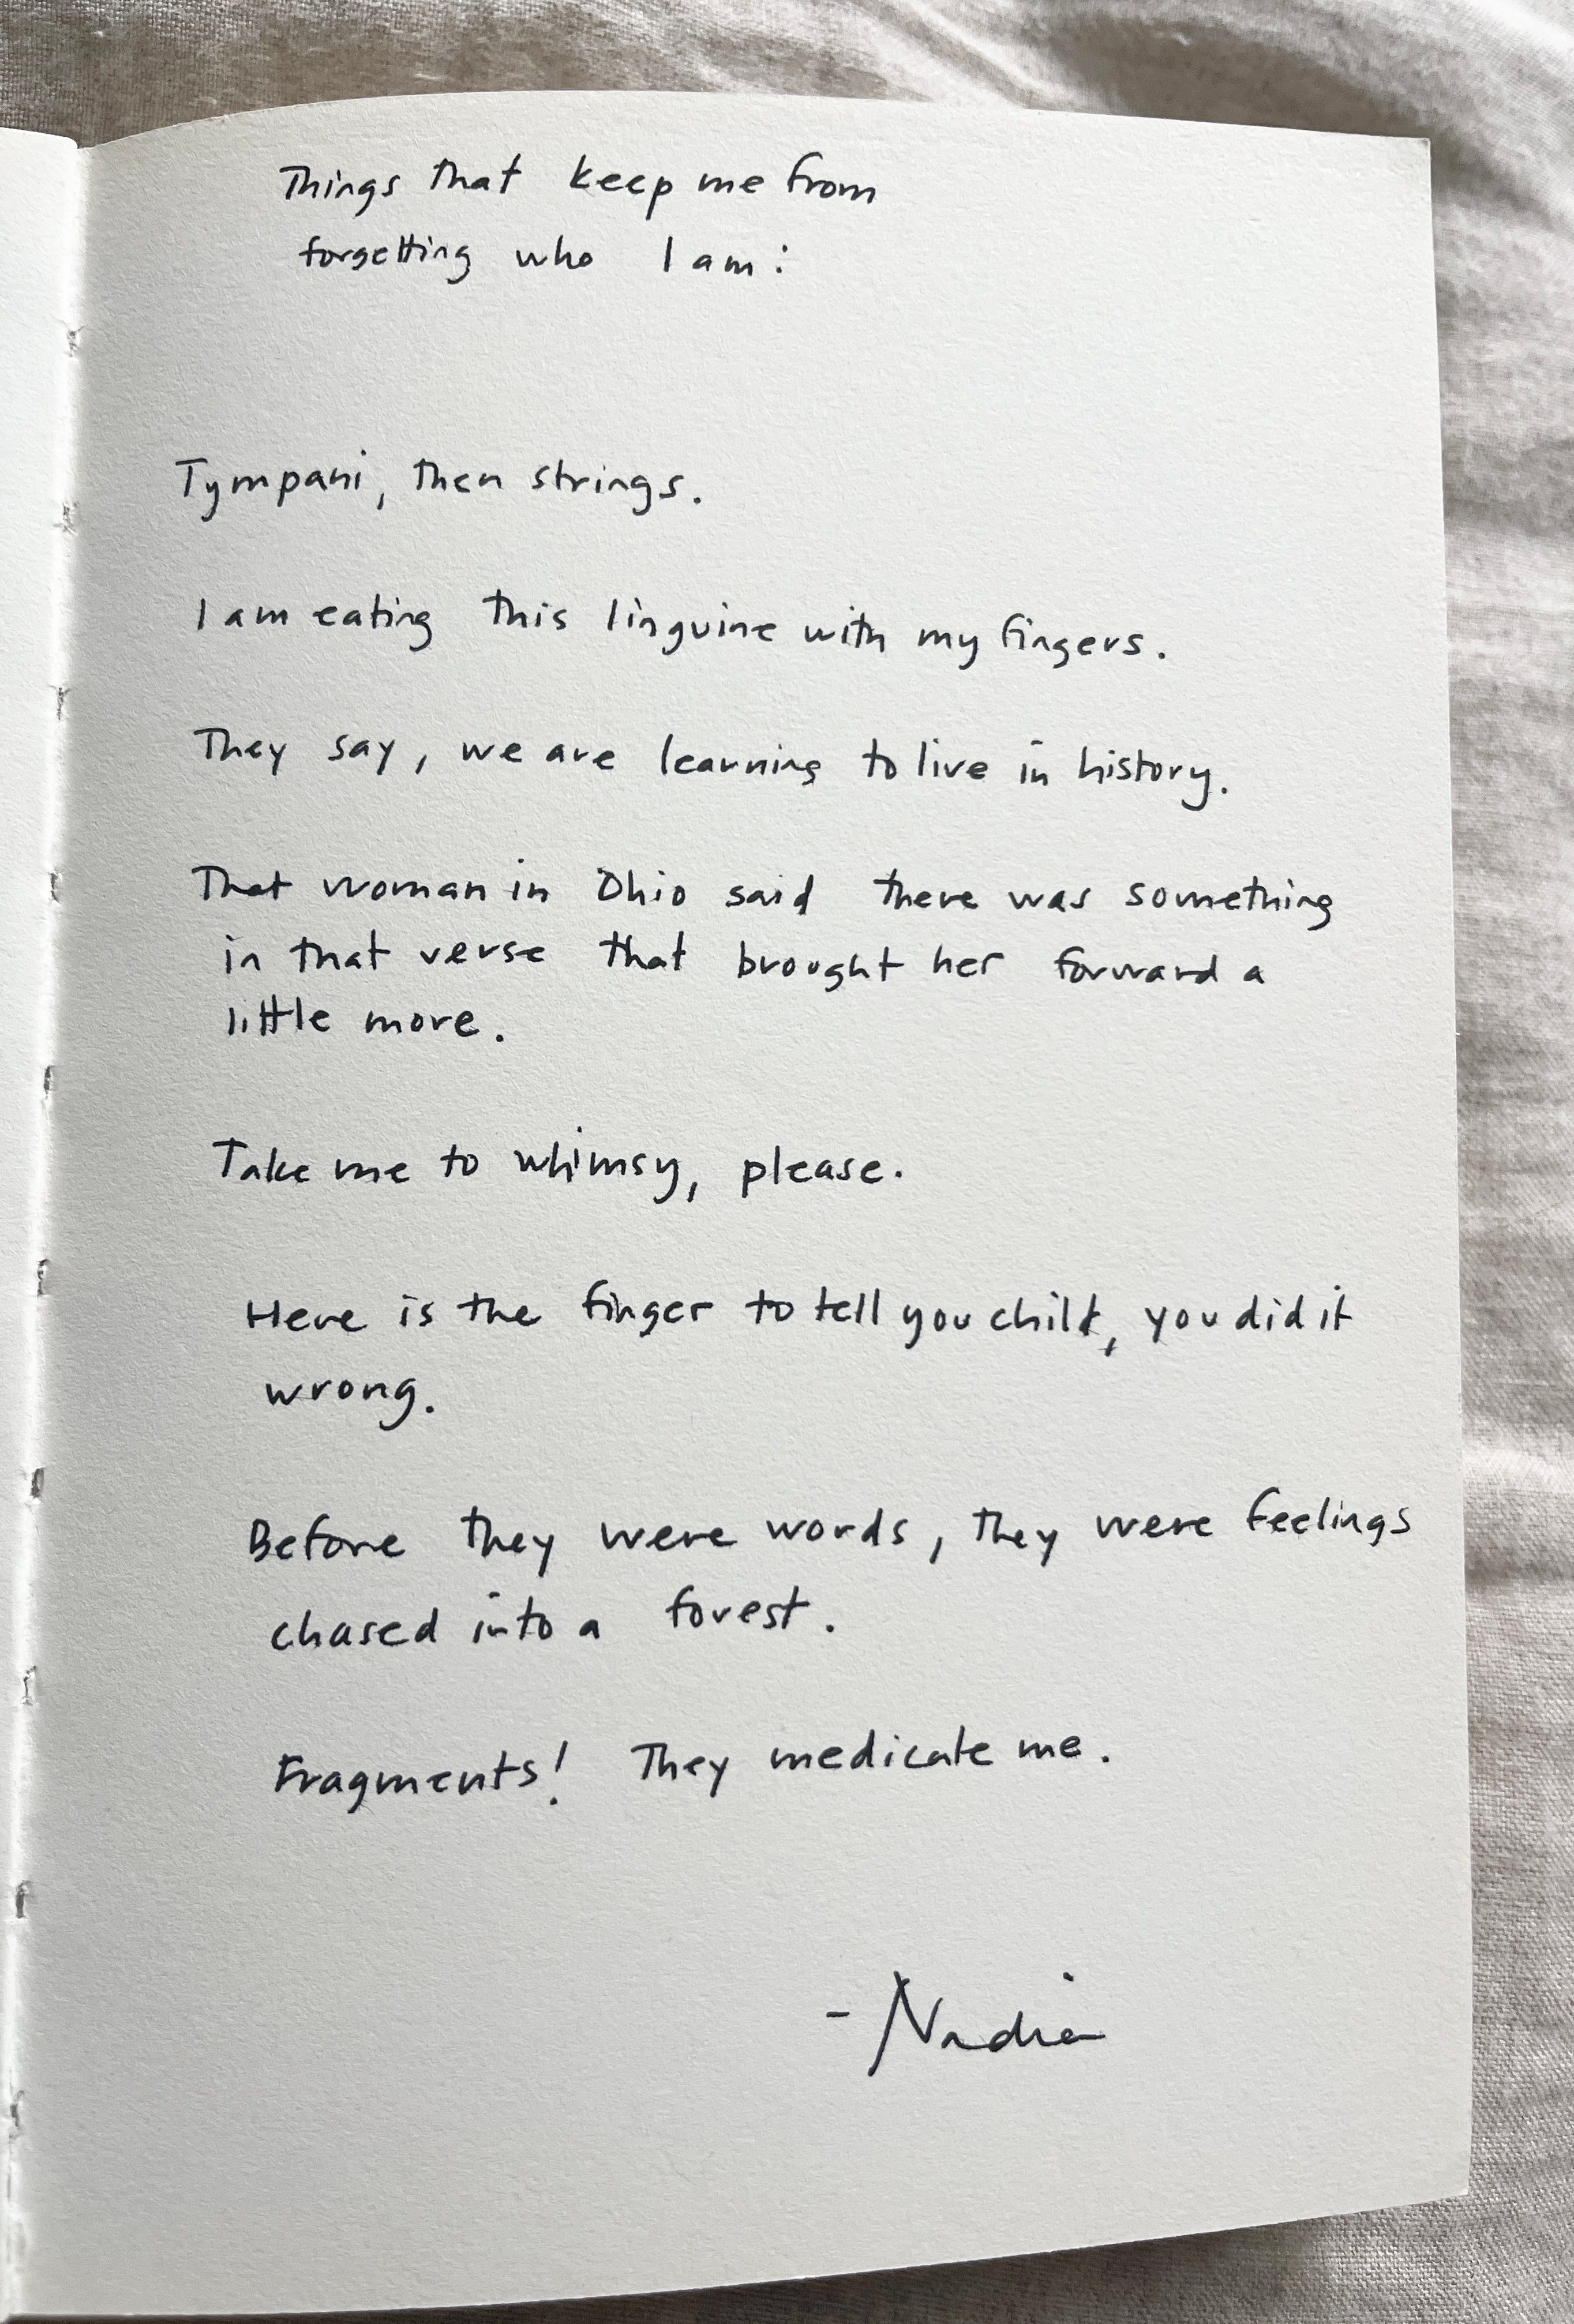 Things that keep me from
forgetting who I am:
Tympani, then strings.
I am eating this linguine with my fingers.
They say, we are learning to live in history.
That woman in Ohio said there was something
in that verse that brought her forward a
little more.
Take me to whimsy, please.
Here is the finger to tell you child, you did it
wrong.
Before they were words, they were feelings
chased into a forest.
Fragments! They medicate me.
- Nadia